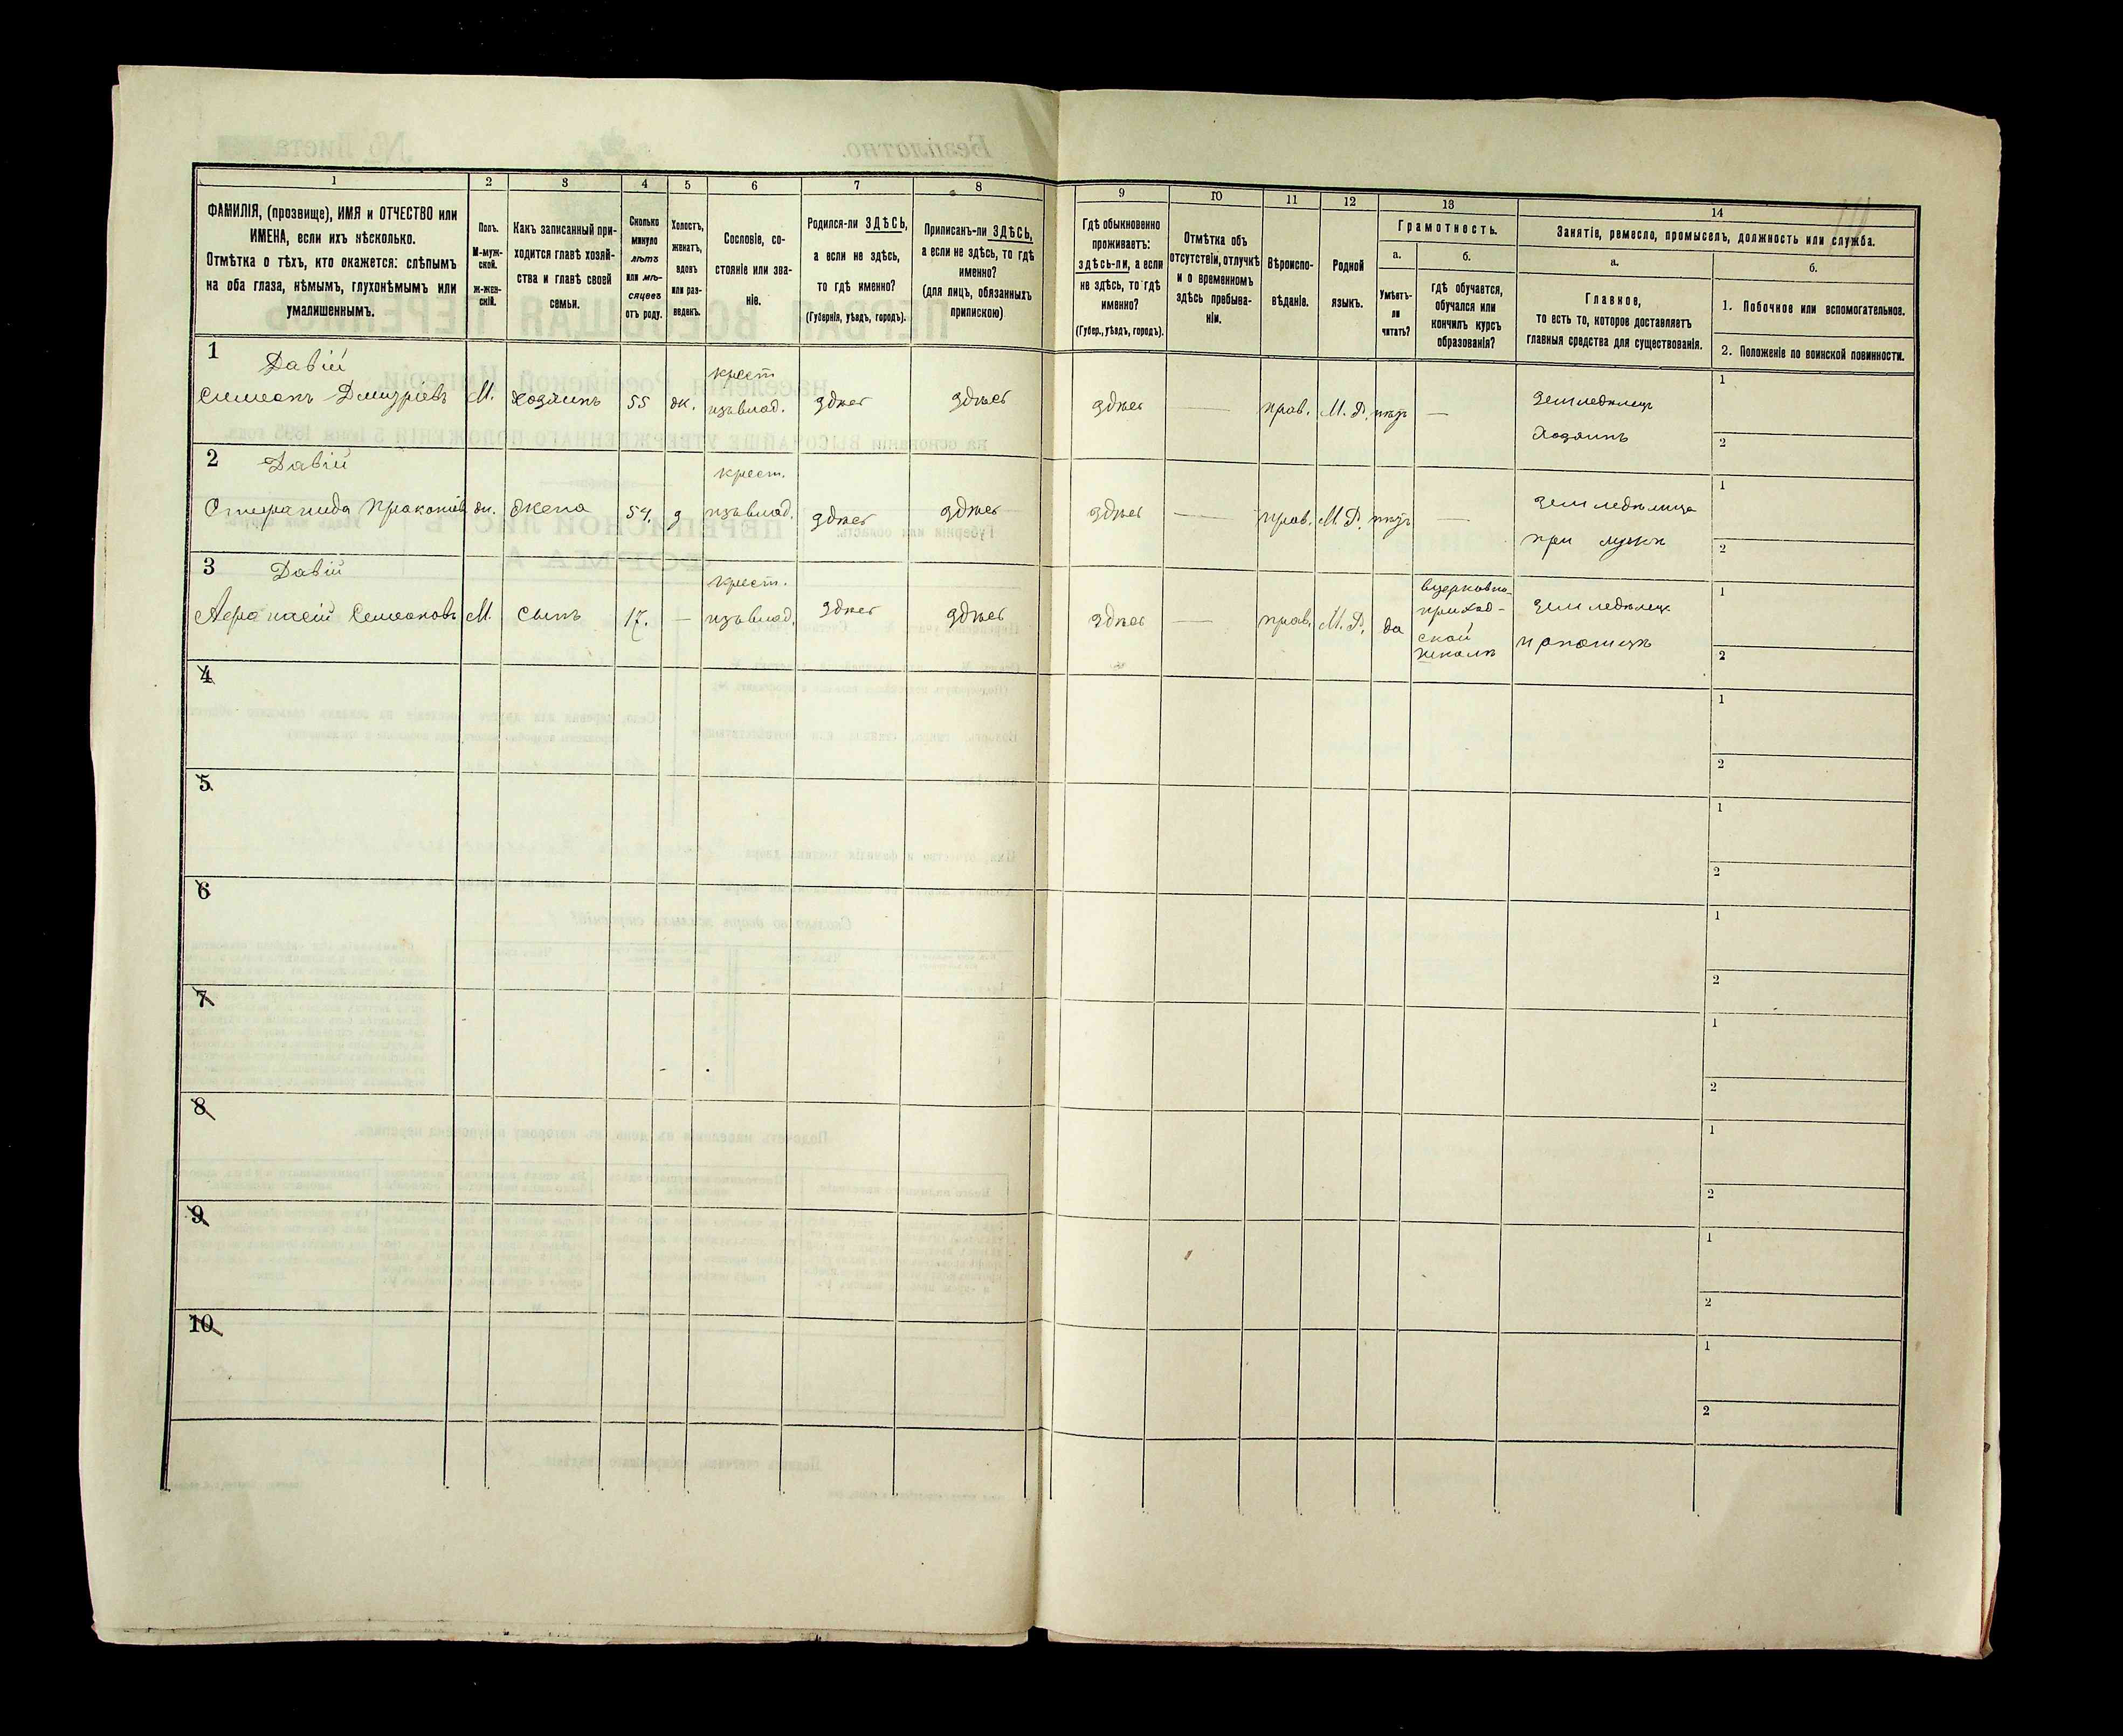 1
2
3
4
5
6
7
8
9
10
11
12
13
14
ФАМИЛІЯ, (прозвище), ИМЯ и ОТЧЕСТВО или
ИМЕНА, если ихъ нѣсколько.
Отмѣтка о тѣхъ, кто окажется: слѣпымъ
на оба глаза, нѣмымъ, глухонѣмымъ или
умалишеннымъ.
Полъ.
М-муж-
ской.
Ж-жен-
скій.
Какъ записанный при-
ходится главѣ хозяй-
ства и главѣ своей
семьи.
Сколько
минуло
лѣтъ
или мѣ-
сяцевъ
отъ роду.
Холостъ,
женатъ,
вдовъ
или раз-
веденъ.
Сословіе, со-
стояніе или зва-
ніе.
Родился-ли ЗДѢСЬ,
а если не здѣсь,
то гдѣ именно?
(Губернія, уѣздъ, городъ).
Приписанъ-ли ЗДѢСЬ,
а если не здѣсь, то гдѣ
именно?
(для лицъ, обязанныхъ
припискою)
Гдѣ обыкновенно
проживаетъ:
здѣсь-ли, а если
не здѣсь, то гдѣ
именно?
(Губер., уѣздъ, городъ).
Отмѣтка объ
отсутствіи, отлучкѣ
и о временномъ
здѣсь пребыва-
ніи.
Вѣроиспо-
вѣданіе.
Родной
языкъ.
Грамотность.
а.
Умѣетъ-
ли
читать?
б.
гдѣ обучается,
обучался или
кончилъ курсъ
образованія?
Занятіе, ремесло, промыселъ, должность или служба.
а.
Главное,
то есть то, которое доставляетъ
главныя средства для существованія.
б.
1. Побочное или вспомогательное.
2. Положеніе по воинской повинности.
1
Давій
Симеонъ Дмитріевъ М. хозяинъ 55 ж. крест
изъ влад. здѣсь здѣсь здѣсь — прав. М. Р. нѣтъ — земледѣлецъ
Хозяинъ
1
2
2
Давій
Степанида ж. жена 54. з крест.
изъ влад. здѣсь здѣсь здѣсь — прав. М. Р. нѣтъ — земледѣлица
при мужѣ
1
2
3
Давій
Афанасій Семеоновъ М. сынъ 17. — крест.
изъ влад. здѣсь здѣсь здѣсь — прав. М. Р. да
вцерковно-
приход-
ской
школѣ
земледѣлецъ
1
2
4
1
2
5
1
2
6
1
2
7
1
2
8
1
2
9
1
2
10
1
2